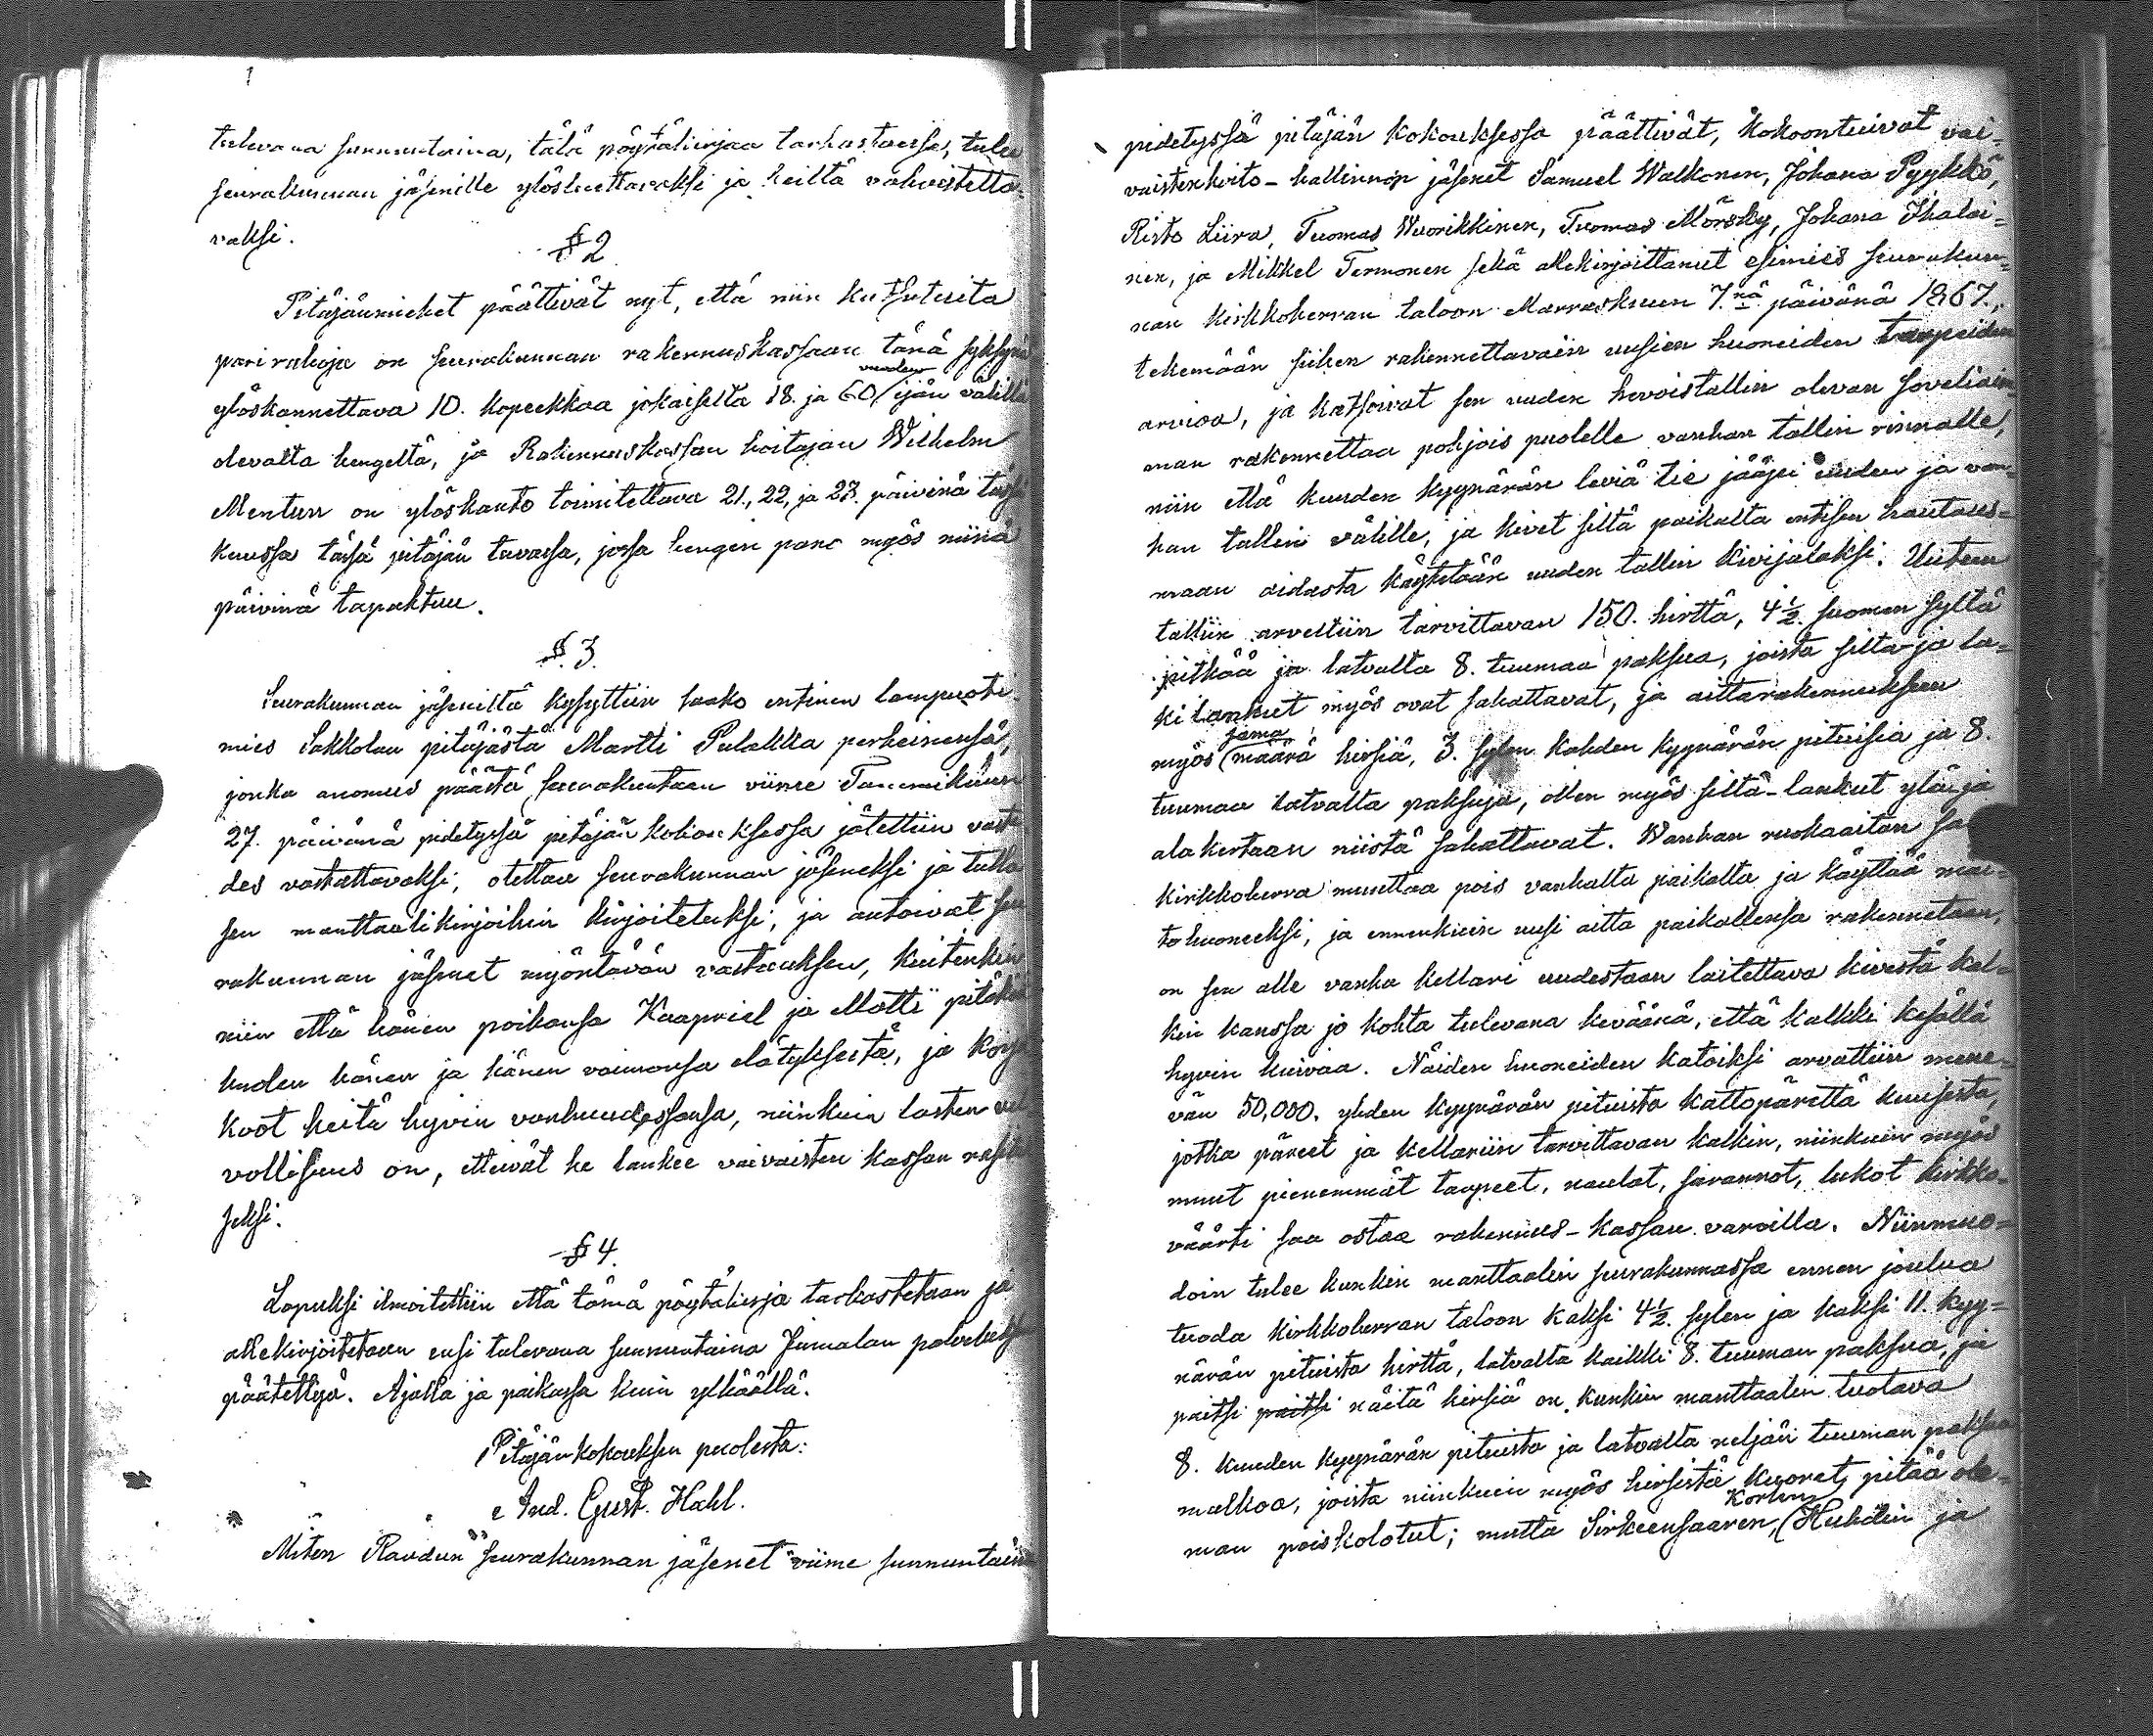 tulevana sunnuntaina, tätä pöytäkirjaa tarkastaissa, tulee
seurakunnan jäsenille ylösluettavaksi ja heiltä vahvistetta-
vaksi.
§ 2
Pitäjänmiehet päättivät nyt, että niin kutsutuita
parirahoja on seurakunnan rakennuskassaan tänä syksynä
vuoden
ylöskannettava 10. kopeekkaa jokaiselta 18. ja 60 ijän välillä
olevalta hengeltä, ja Rakennuskassan hoitajan Wilhelm
Mentun on ylöskanto toimitettava 21., 22, ja 23. päivinä tässä
kuussa tässä pitäjän tuvassa, jossa hengen pano myös niinä
päivinä tapahtuu.
§ 3.
Seurakunnan jäseniltä kysyttiin saako entinen lampuoti
mies Sakkolan pitäjästä Martti Pulakka perheinensä,
jonka anomus päästä seurakuntaan viime Tammikuun
27. päivänä pidetyssä pitäjän kokouksessa jätettiin vasta
des vastattavaksi, otettaa seurakunnan jäseneksi ja tulla
sen manttaalikirjoihin kirjoitetuksi; ja antoivat seu
rakunnan jäsenet myöntävän vastauksen, kuitenkin
niin että hänen poikansa Kaapriel ja Matti pitäkööt
huolen hänen ja hänen vaimonsa elätyksestä, ja
koot heitä hyvin vanhuudessansa, niinkuin lasten vel
vollisuus on, etteivät he lankee vaivaisten kassan rasituk
seksi.
§ 4.
Lopuksi ilmoitettiin että tämä pöytäkirja tarkastetaan ja
allekirjoitetaan ensi tulevana sunnuntaina Jumalan palveluksen
päätettyä. Ajalla ja paikassa kuin ylhäällä.
Pitäjänkokouksen puolesta:
And. Gust. Hahl.
Miten Raudun seurakunnan jäsenet viime sunnuntaina
pidetyssä pitäjän kokouksessa päättivät, kokoontuivat vai-
vaistenhoito-hallinnon jäsenet Samuel Walkonen, Johana Pyykkö,
Risto Liira, Tuomas Wuorikkinen, Tuomas Mörsky, Johana Ihalai-
nen, ja Mikkel Termonen sekä allekirjoittanut esimies seurakun-
nan kirkkoherran taloon Marraskuun 7.nä päivänä 1867.,
tekemään siihen rakennettavain uusien huoneiden tarpeiden
arvioa, ja katsoivat sen uuden hevoistallin olevan soveliaim-
man rakennettaa pohjois puolelle vanhan tallin rinnalle,
niin että kuuden kyynärän leviä tie jääpi uuden ja van-
han tallin välille, ja kivet siltä paikalta entisen hautaus-
maan aidasta käytetään uuden tallin kivijalaksi. Uuteen
talliin arveltiin tarvittavan 150. hirttä, 4½. suomen syltä
pitkää ja latvalta 8. tuumaa paksua, joista silta ja la-
ki lankut myös ovat sahattavat, ja aittarakennukseen
sama
myös määrä hirsiä, 3. sylen kahden kyynärän pituisia ja 8.
tuumaa latvalta paksuja, ollen myös silta-lankut ylä ja
alakertaan niistä sahattavat. Wanhan ruokaaitan saa
kirkkoherra muuttaa pois vanhalta paikalta ja käyttää mai-
tohuoneeksi, ja ennenkuin uusi aitta paikallensa rakennetaan,
on sen alle vanha kellari uudestaan laitettava kivestä kal-
kin kanssa jo kohta tulevana keväänä, että kalkki kesällä
hyvin kuivaa. Näiden huoneiden katoiksi arvattiin mene-
vän 50,000. yhden kyynärän pituista kattopärettä kuusesta,
jotka päreet ja kellariin tarvittavan kalkin, niinkuin myös
muut pienemmät tarpeet, naulat, saranat, lukot kirkko-
väärti saa ostaa rakennus-kassan varoilla. Niinmuo-
doin tulee kunkin manttaalin seurakunnassa ennen joulua
tuoda kirkkoherran taloon kaksi 4½. sylen ja kaksi 11. kyy-
närän pituista hirttä, latvalta kaikki 8. tuuman paksua, ja
paitsi paitsi näitä hirsiä on kunkin manttaalin tuotava
8. kuuden kyynärän pituista ja latvalta neljän tuuman paksua
malkoa, joista niinkuin myös hirsistä kuoret pitää ole-
Korlen
man poiskolotut; mutta Sirkeensaaren, Huhdin ja